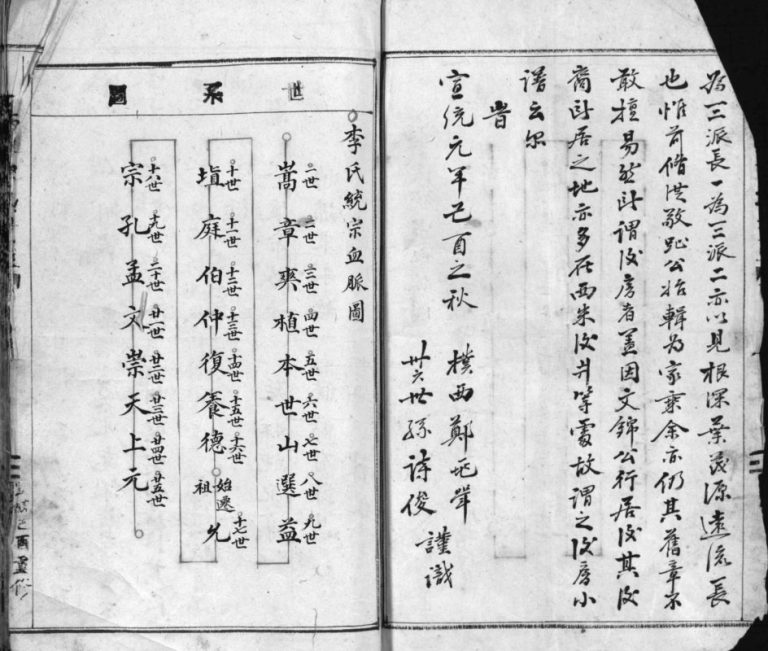 為三派長一為三派二亦以見根深葉茂源遠流長
也惟前脩洪敬公始輯為家乘余亦仍其舊章不
敢擅易然此謂後房者蓋因文錦公行居後其後
裔所居之地亦多在西朱後井等處故謂之後房小
譜云尔
旹
宣統元年己酉之秋 樸西鄭聲
卅六世孫詩俊 謹識
世系圖
李氏統宗血脈圖
一世 二世 三世 四世 五世 六世 七世 八世 九世
嵩章奭植本世山選益
十世 十一世 十二世 十三世 十四世 十五世 十六世 始遷祖 十七世
埴庭伯仲復養德允
十八世 十九世 二十世 廿一世 廿二世 廿三世 廿四世 廿五世
宗孔孟文崇天上元
己酉重修